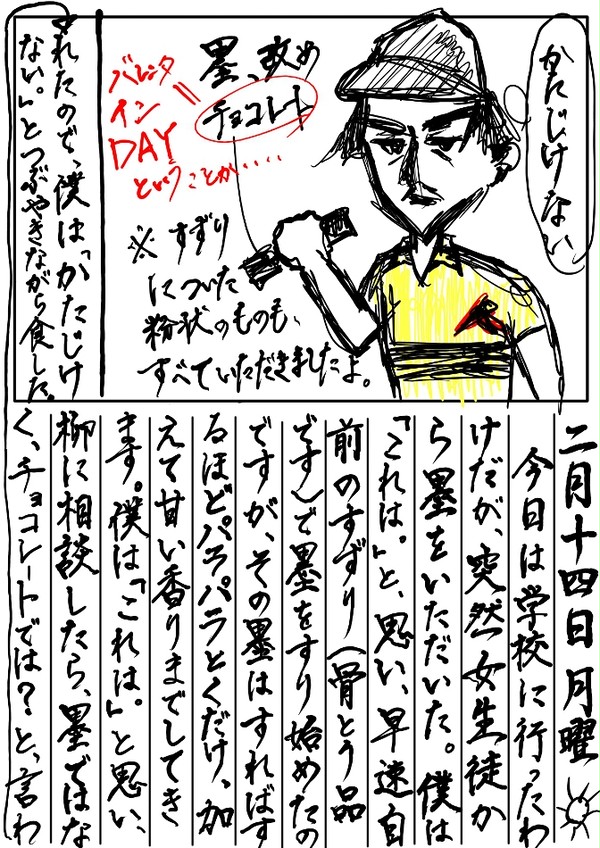 かたじけない
墨、攻め
チョコレート
バレンタ
イン
DAY
ということか、、、、
※すずり
についた
粉状のものも、
すべていただきましたよ。
二月十四日月曜
今日は学校に行ったわ
けだが、突然女生徒か
ら墨をいただいた。僕は
「これは。」と、思い、早速自
前のすずり(骨とう品
です)で墨をすり始めたの
ですが、その墨はすればす
るほどパラパラとくだけ、加
えて甘い香りまでしてき
ます。僕は「これは。」と思い、
柳に相談したら、墨ではな
く、チョコレートでは?と、言わ
れたので、僕は「かたじけ
ない。」とつぶやきながら食した。